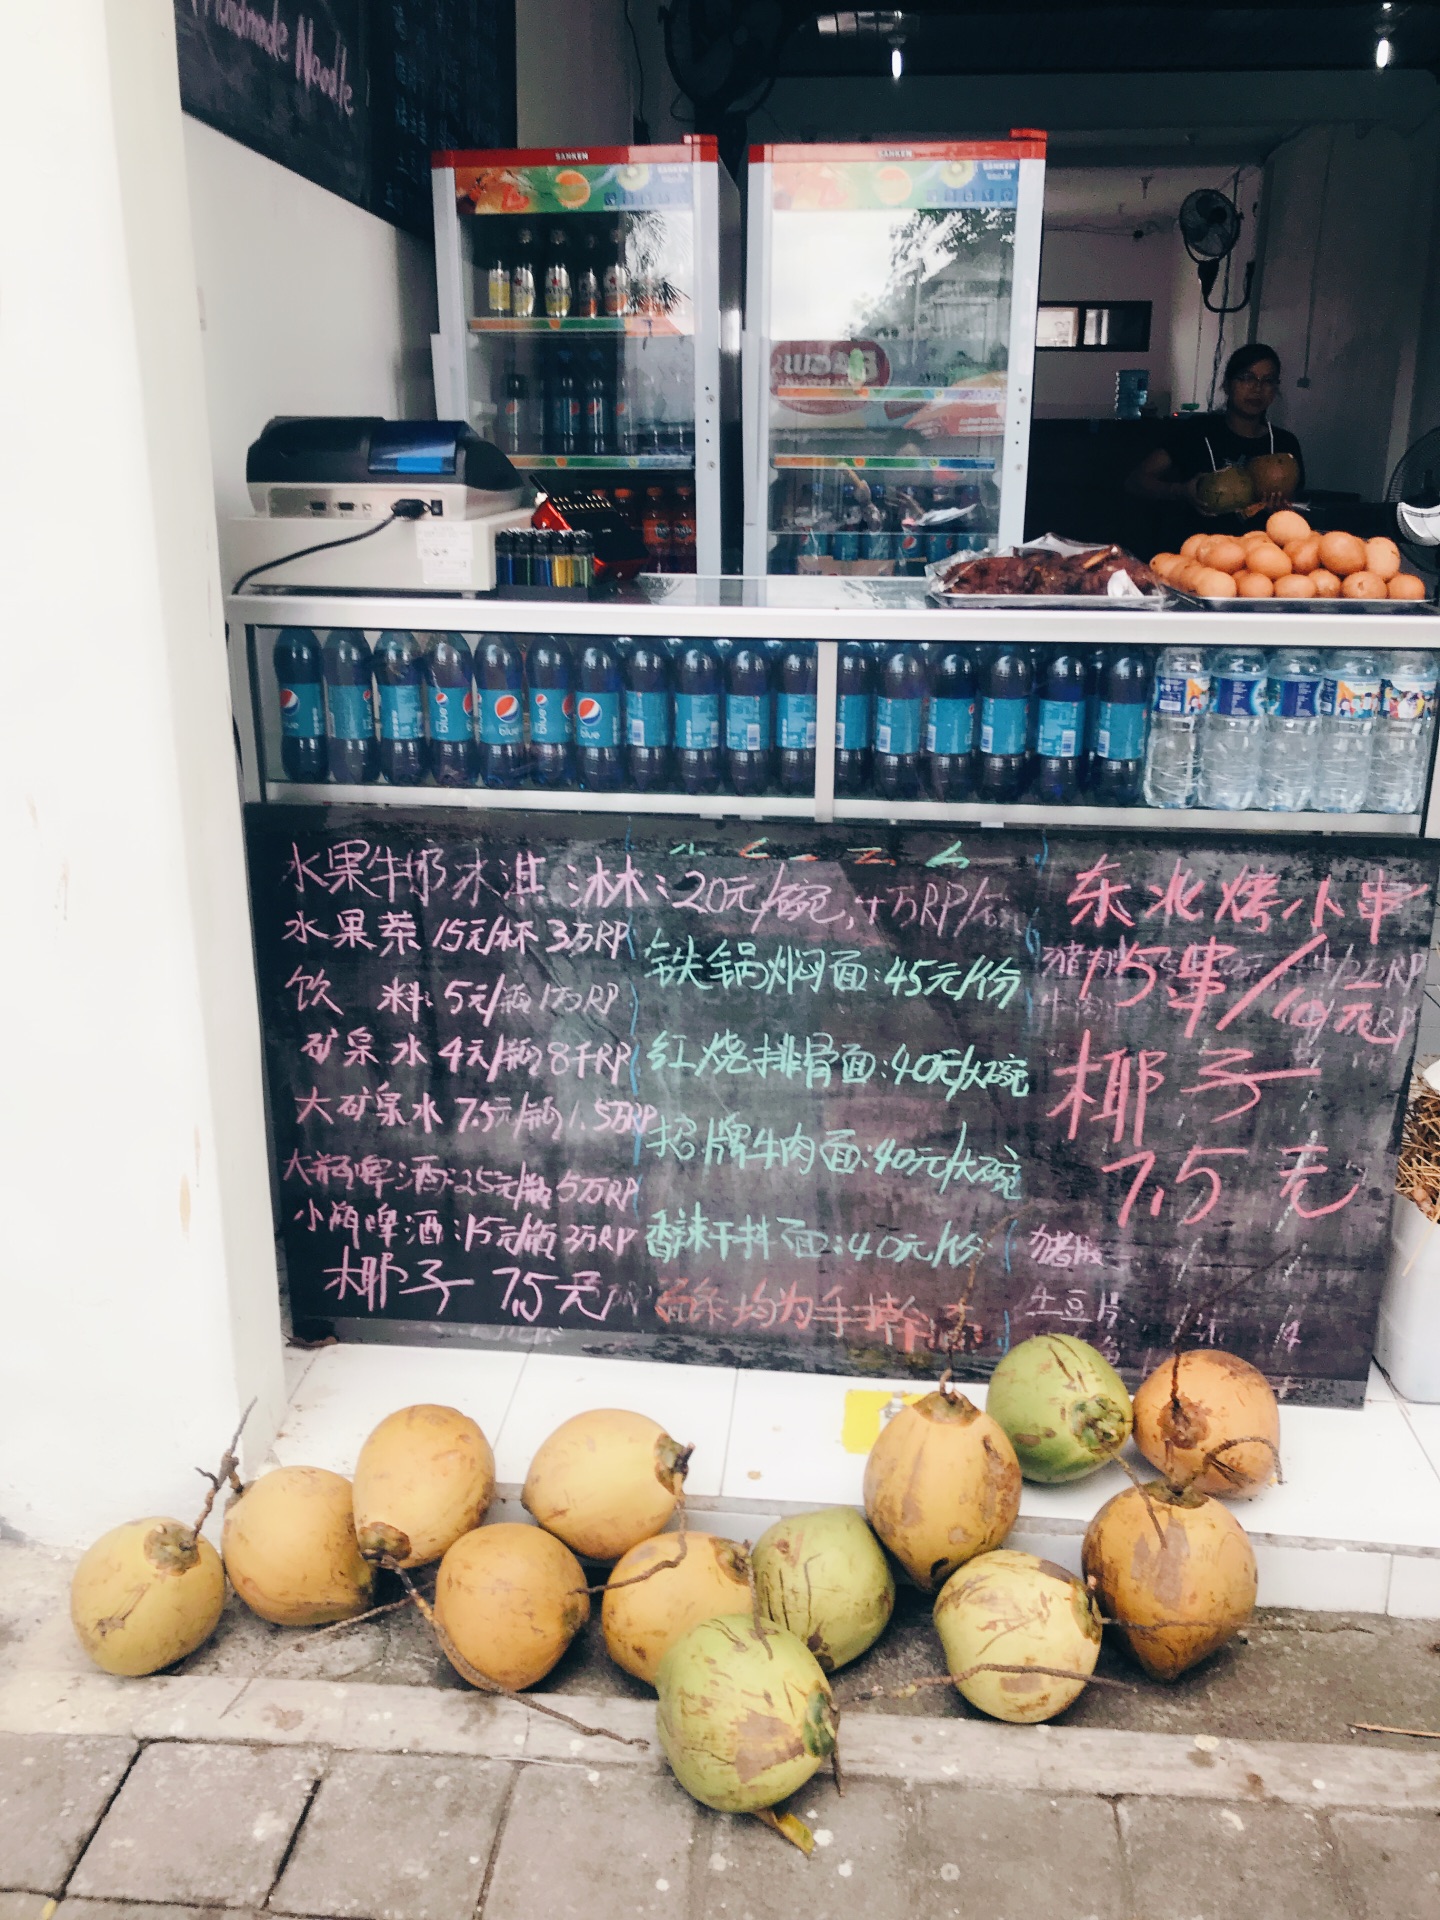 Handmade Noodle
SANKEN
SANKEN
SANKEN
SANKEN
pepsi
blue
blue
blue
blue
blue
水果牛奶冰淇淋：20元/碗，4万RP/碗
水果茶 15元/杯 3万RP
饮 料：5元/瓶 1万RP
矿泉水 4元/瓶 8千RP
大矿泉水 7.5元/瓶 1.5万RP
大瓶啤酒：25元/瓶 5万RP
小瓶啤酒：15元/瓶 3万RP
椰子 7.5元
铁锅焖面：45元/份
红烧排骨面：40元/大碗
招牌牛肉面：40元/大碗
香辣干拌面：40元/份
面条均为手擀
东北烤小串
15串/
元
椰子
7.5元
土豆片